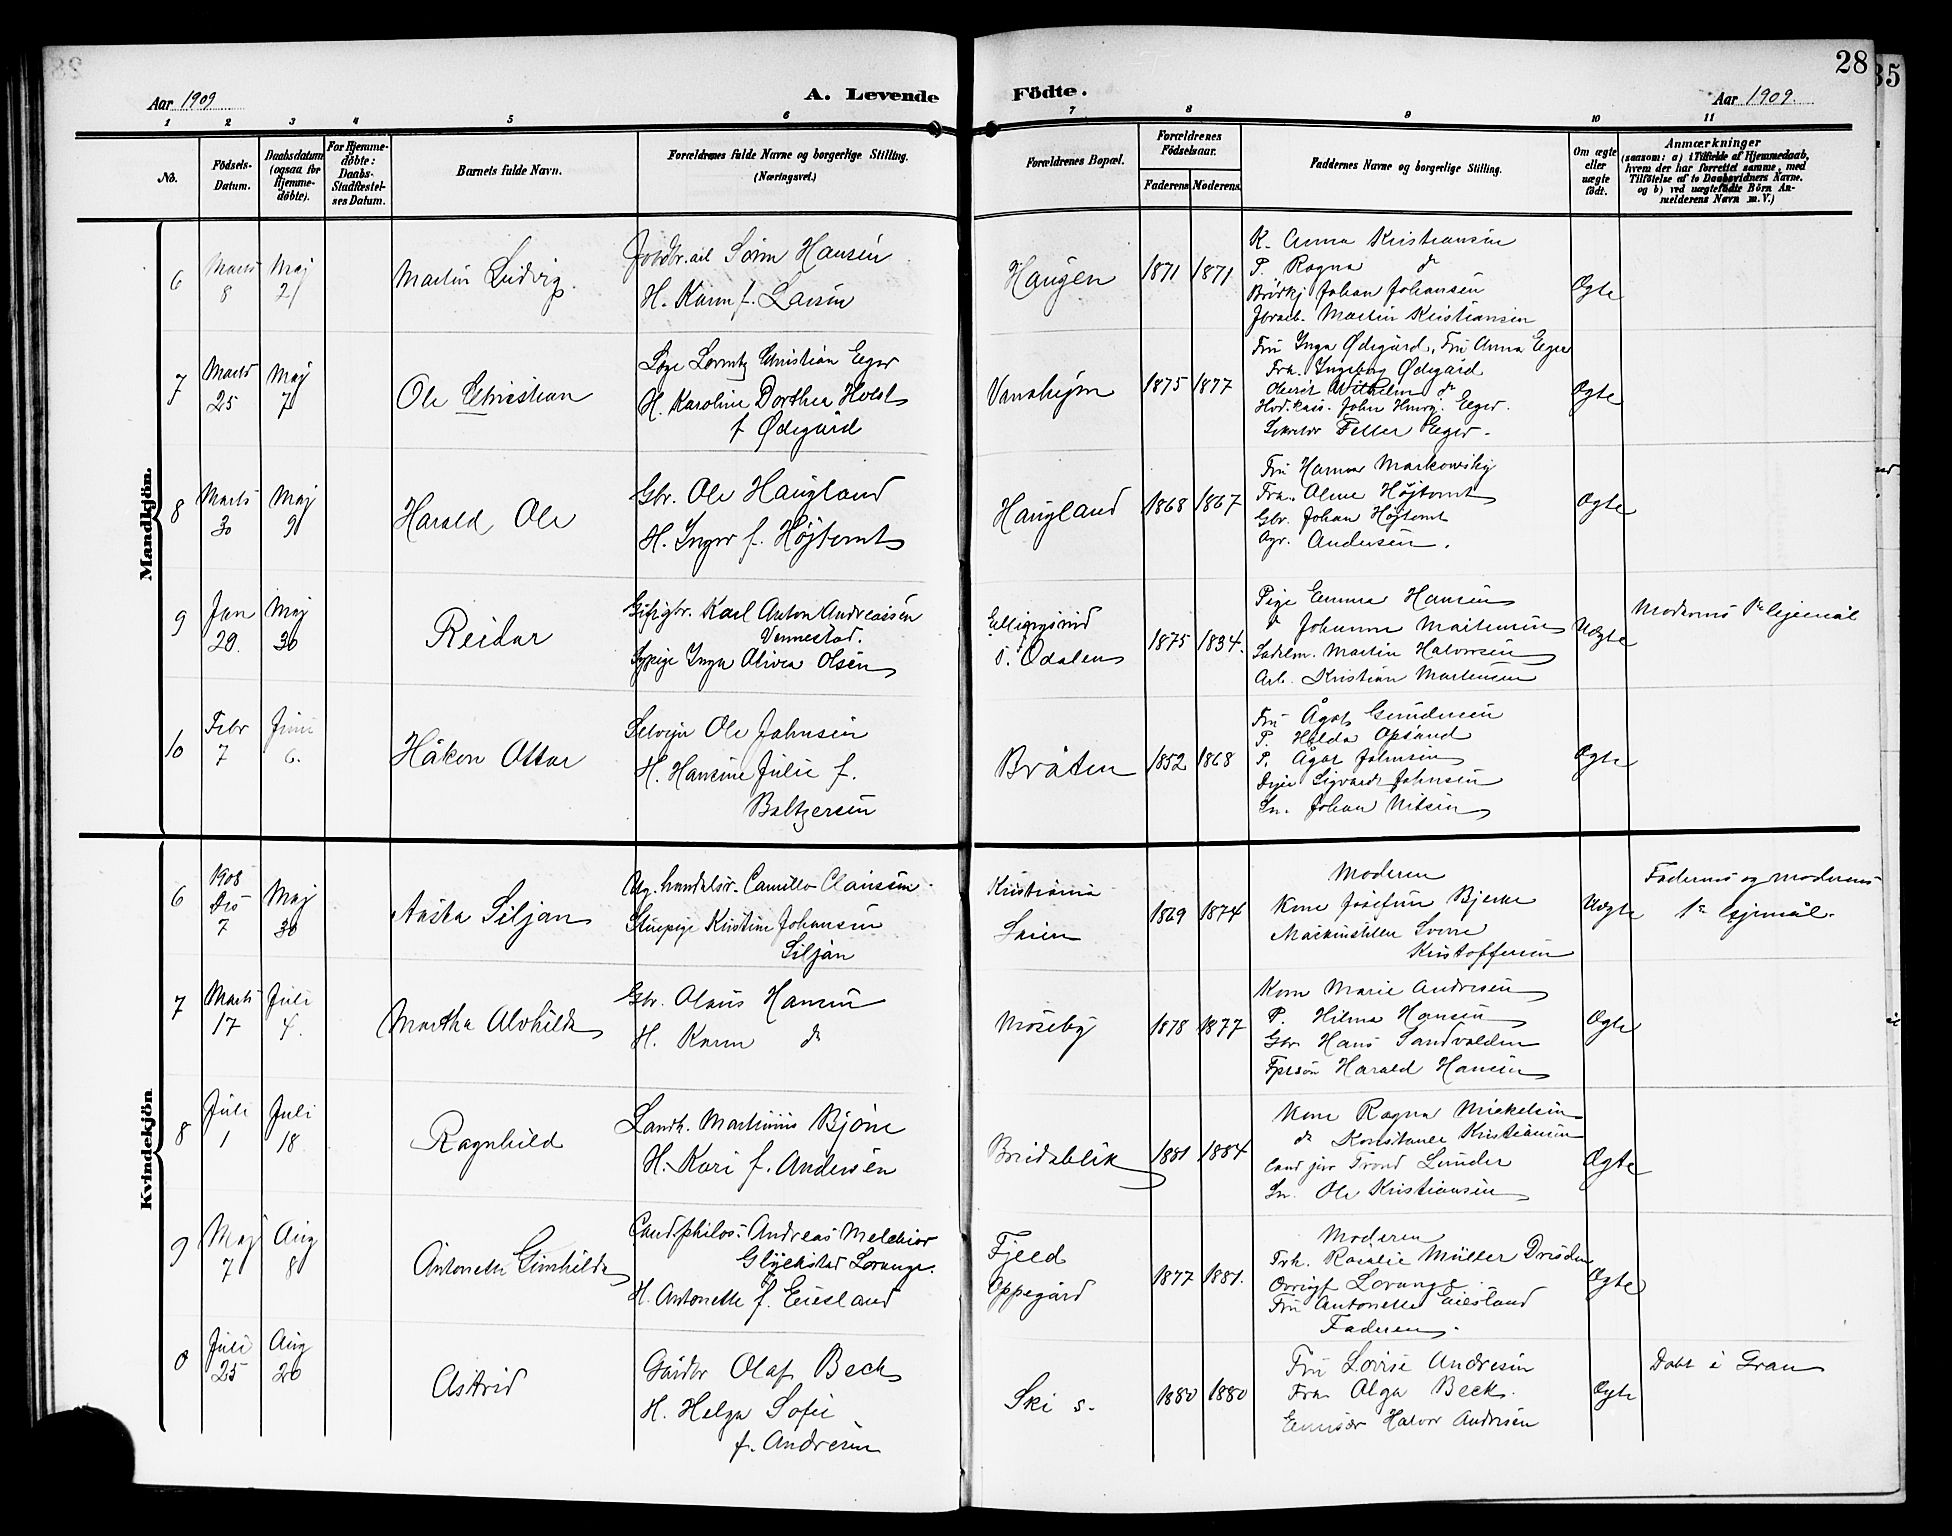 28
35
Aar 1909
A. Levende
Födte.
Aar 1909.
1 2 3 4 5 6 7 8 9 10 11
No.
Födsels-Datum.
Daabsdatum (ogsaa for Hjemmedöbte).
For Hjemmedöbte: Daabs-Stadfæstelses Datum.
Barnets fulde Navn.
Forældrenes fulde Navne og borgerlige Stilling.
(Næringsvei.)
Forældrenes Bopæl.
Forældrenes Födselsaar.
Faderens Moderens
Faddernes Navne og borgerlige Stilling.
Om ægte eller uægte födt.
Anmærkninger
(saasom: a) i Tilfælde af Hjemmedaab,
hvem der har forrettet samme, med
Tilföielse af to Daabsvidners Navne.
og b) ved uægtefödte Börn An-
melderens Navn m. V.)
Mandkjön.
6
Marts 8
Maj 2
Martin Ludvig.
Sörn Hansen
H. Karen f. Larsen
Haugen
1871 1871
K. Anna Kristiansen
P. Ragna do
Johan Johansen
Martin Kristiansen
Ægte
7
Marts 25
Maj 7
Ole Christian
Læge Lorentz Christian Eger
H. Karoline Dorthea Holst
f Ødegård
1875 1877
Fru Inga Ødegård, Fru Anna Eger
Frk. Ingeborg Ødegård
Wilhelm do
Hovkass. John Henry Eger.
Sekretær Eger.
Ægte
8
Marts 30
Maj 9
Harald Ole
Gbr. Ole Haugland
H. Inger f. Højtomt
Haugland
1868 1867
Fru Hanna Markowsky
Frk. Højtomt
Gbr. Johan Højtomt
Agr. Andersen.
Ægte
9
Jan 20.
Maj 30
Reidar
Karl Anton Andreassen
Vennestad.
Sypige Inga Olivia Olsen
Ellingsrud
S. Odalen
1875 1834.
Pige Emma Hansen
do Johanne Martensen
Sadelm. Martin Halvorsen
Arb. Kristian Martensen
Uægte
Moderens 1ste Lejemål
10
Febr 7
Juni 6.
Håkon Ottar
Selvejer Ole Johnsen
H. Hansine Julie f.
Baltzersen
Bråten
1852 1868
Fru Ågot Gundersen
P. Hilda Opsand
P. Ågot Johnsen
Sigvard Johnsen
Sn. Johan Nilsen
Ægte
Kvindekjön
6
1908 Des 7
Maj 30
Aasta Siljan
handelsr. Camillo Clausen.
Stuepige Kristine Johansen
Siljan
Kristiania
Skien
1869 1874
Moderen
Kone Josefine Bjerke
Maskinstiller Sverre
Kristoffersen
Uægte
Faderens og moderens
1ste lejemål.
7
Marts 17
Juli 4.
Martha Alvhilde
Gbr. Olaus Hansen
H. Karen do
Moseby
1878 1877
Kone Marie Andresen
P. Hilma Hansen
Gbr Hans Sandvolden
Harald Hansen
Ægte
8
Juli 1
Juli 18
Ragnhild
Landh. Martinius Bjone
H. Kari f. Andersen
Breidablik
1881 1884
Kone Ragna Mickelsen
do Konstance Kristiansen
cand jur Trond Lunder
Sn. Ole Kristiansen
Ægte
9
Maj 7
Aug 8
Antonette Gunhilda
Cand. philos. Andreas Melchior
Glückstad Lorange.
H. Antonette f. Eiesland
Fjeld
Oppegård
1877 1881.
Moderen
Frk. Rosalie Müller Dresden
Lorange.
Fru Antonette Eiesland
Faderen.
Ægte
0
Juli 25
Aug 20
Astrid
Gårdbr Olaf Beck
H. Helga Sofie
f. Andresen
Ski s.
1880 1880
Fru Lovise Andresen
Frk Olga Beck.
Halvor Andersen
Ægte
Døbt i Gran